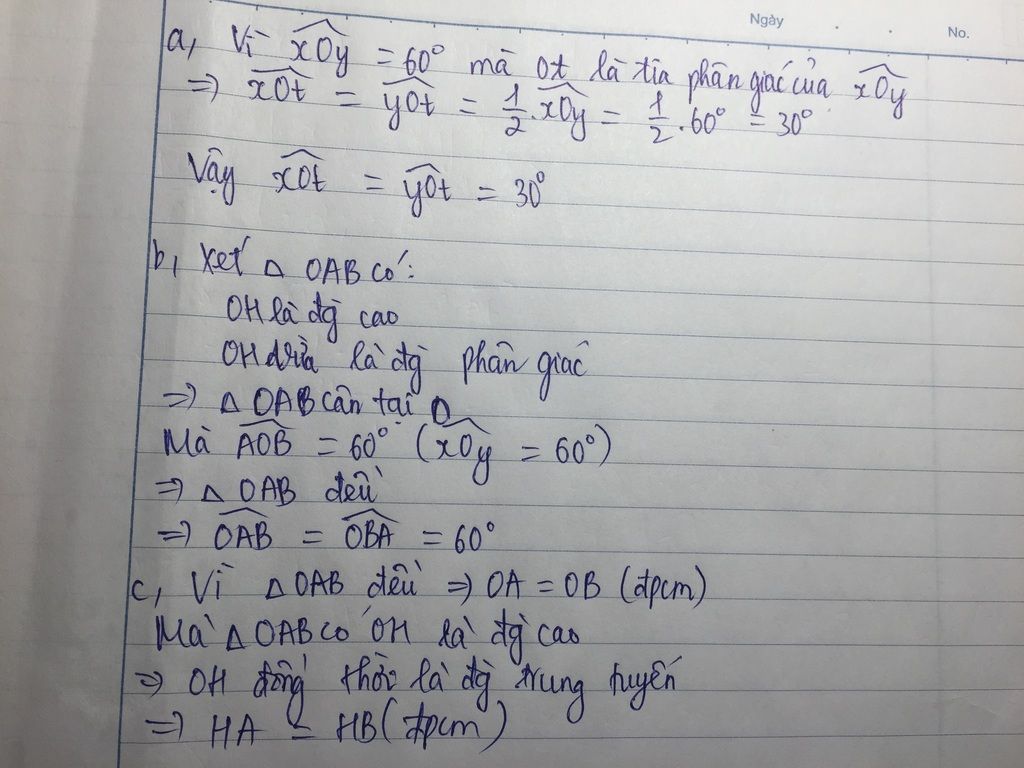 Ngày
No.
a, Vì xOy = 60° mà Ot là tia phân giác của xOy
=> xOt = yOt = 1/2 . xOy = 1/2 . 60° = 30°
Vậy xOt = yOt = 30°
b, Xét △ OAB có:
OH là đg cao
OH vừa là đg phân giác
=> △ OAB cân tại O
Mà AOB = 60° (xOy = 60°)
=> △ OAB đều
=> OAB = OBA = 60°
c, Vì △OAB đều => OA = OB (đpcm)
Mà △OAB có OH là đg cao
=> OH đồng thời là đg trung tuyến
=> HA = HB (đpcm)